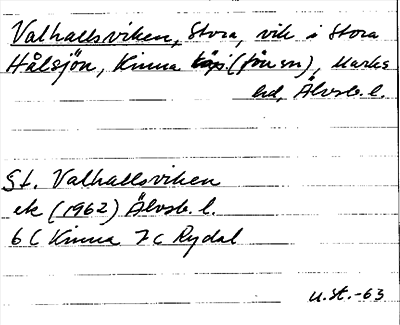 Valhallsviken, Stora, vik i Stora
Hålsjön, Kinna köp. (förs n), Marks
hd, Älvsb. l.
St. Valhallsviken
ek (1962) Älvsb. l.
6 C Kinna 7 C Rydal
u.st.-63